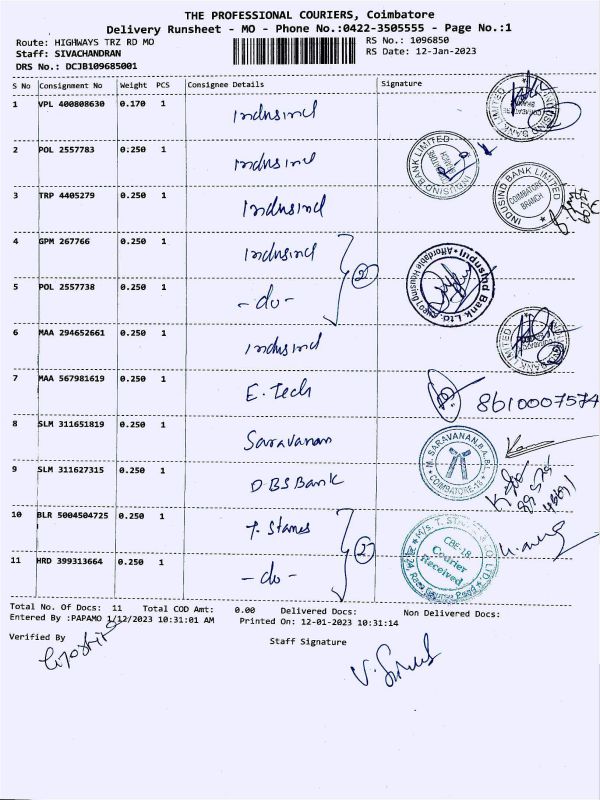 THE PROFESSIONAL COURIERS, Coimbatore
Delivery Runsheet - MO - Phone No.:0422-3505555 - Page No.:1
Route: HIGHWAYS TRZ RD MO
Staff: SIVACHANDRAN
DRS No.: DCJB109685001
RS No.: 1096850
RS Date: 12-Jan-2023
S No Consignment No Weight PCS Consignee Details Signature
1 VPL 400808630 0.170 1 Indusind
2 POL 2557783 0.250 1 Indusind
INDUSIND BANK LIMITED COIMBATORE BRANCH
3 TRP 4405279 0.250 1 Indusind
INDUSIND BANK LIMITED COIMBATORE BRANCH
4 GPM 267766 0.250 1 Indusind
2
IndusInd Bank Ltd. Affordable Housing
5 POL 2557738 0.250 1 -do-
6 MAA 294652661 0.250 1 Indusind
7 MAA 567981619 0.250 1 E.Tech
8610007574
8 SLM 311651819 0.250 1 Saravanan
M. SARAVANAN, B.A., B.L. COIMBATORE-18
9 SLM 311627315 0.250 1 DBS Bank
10 BLR 5004504725 0.250 1 T. Stanes
2
M/s. T. STANES & CO LTD. CBE-18 Courier Received 8/23-24, Race Course Road
11 HRD 399313664 0.250 1 -do-
Total No. Of Docs: 11 Total COD Amt: 0.00 Delivered Docs: Non Delivered Docs:
Entered By :PAPAMO 1/12/2023 10:31:01 AM Printed On: 12-01-2023 10:31:14
Verified By
Staff Signature